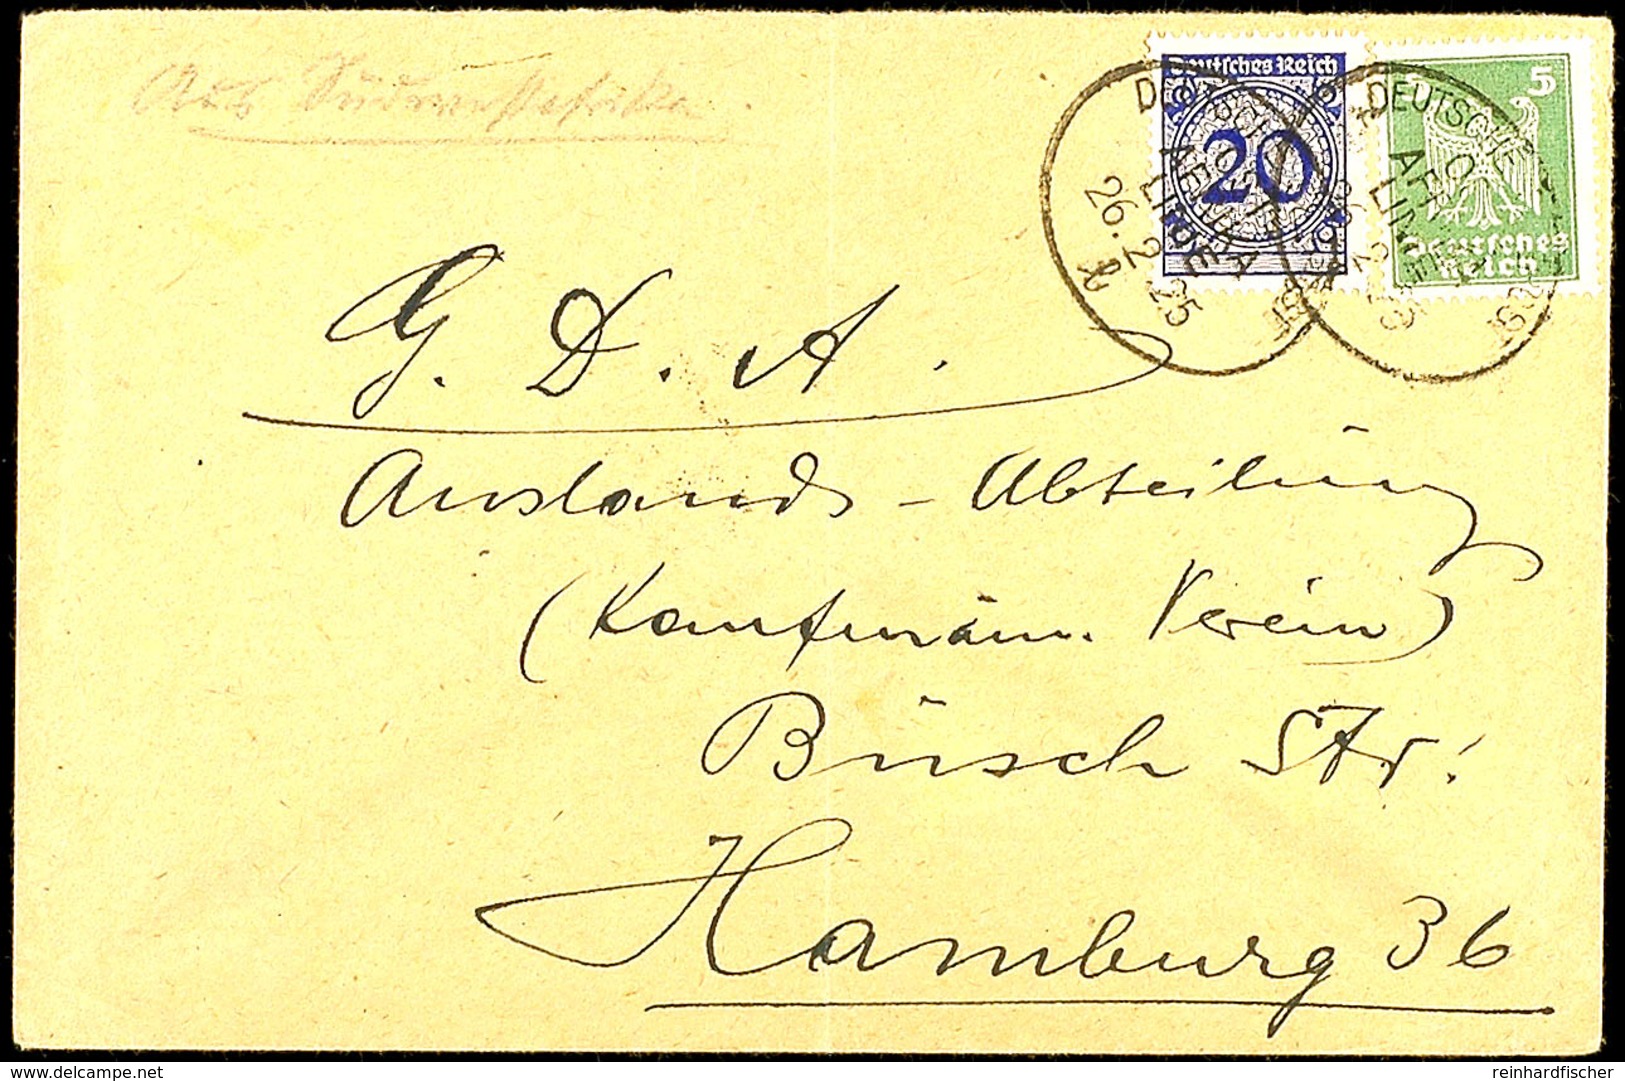 Aus Südwestafrika
Deutsches Reich
20
5
Deutsches
Reich
DEUTSCHE
OST
AFRIKA
LINIE
26.2.25
DEUTSCHE
AFRIKA
LINIE
G. D. A.
Auslands - Abteilung
(Kaufmänn. Verein)
Büsch Str.
Hamburg 36
www.delcampe.net
reinhardfischer